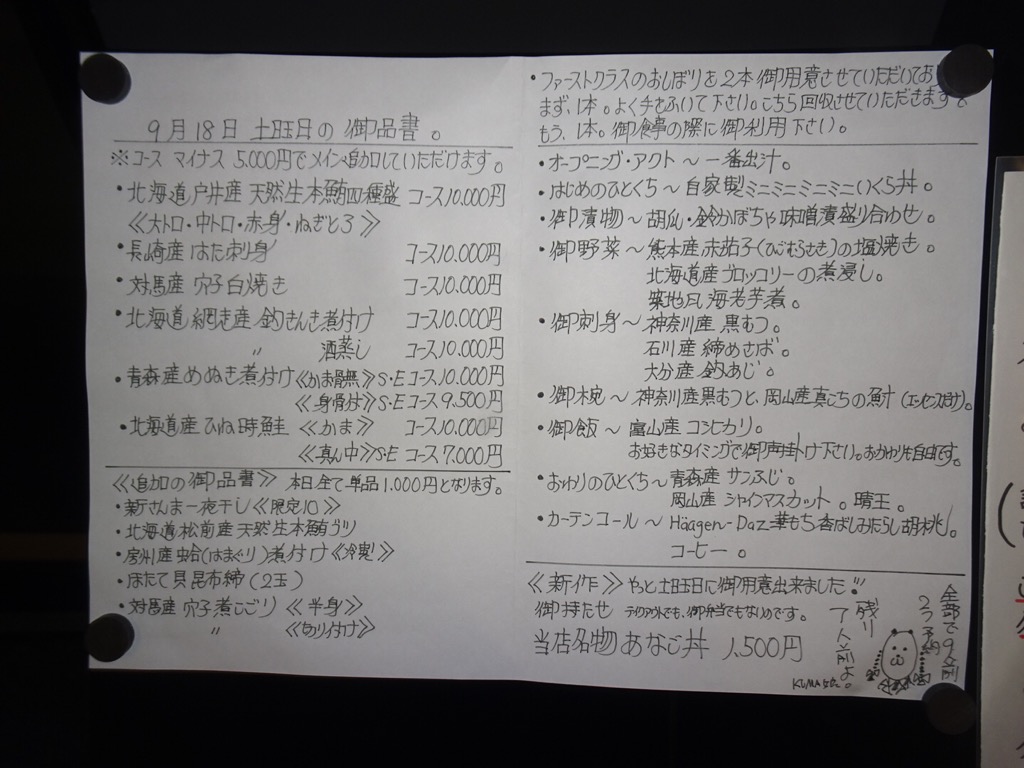 9月18日 土曜日の御品書。
※コース マイナス 5.000円でメイン追加していただけます。
・北海道戸井産 天然生本鮪四種盛 コース10.000円
≪大トロ・中トロ・赤身・ねぎとろ≫
・長崎産 はた刺身 コース10.000円
・対馬産 穴子白焼き コース10.000円
・北海道 網走産 釣きんき煮付け コース10.000円
〃 酒蒸し コース10.000円
・青森産めぬき煮付け≪かま骨無≫S・Eコース10.000円
≪身骨付≫S・Eコース9.500円
・北海道産 ひね時鮭 ≪かま≫ コース10.000円
≪真ん中≫S・E コース7.000円
≪追加の御品書≫ 本日全て単品1.000円となります。
・新さんま一夜干し≪限定10≫
・北海道松前産天然生本鮪づけ
・房州産蛤(はまぐり)煮付け≪冷製≫
・ほたて貝昆布締(2玉)
・対馬産 穴子煮こごり ≪半身≫
〃 ≪切り付け≫
・ファーストクラスのおしぼりを2本御用意させていただいてお
まず、1本。よく手をふいて下さい。こちら回収させていただきます
もう、1本。御食事の際に御利用下さい。
・オープニング・アクト〜一番出汁。
・はじめのひとくち〜自家製ミニミニミニミニいくら丼。
・御漬物〜胡瓜・鈴かぼちゃ味噌漬盛り合わせ。
・御野菜〜熊本産赤茄子(ひごむらさき)の塩焼き。
北海道産ブロッコリーの煮浸し。
築地風海老芋煮。
・御刺身〜神奈川産黒むつ。
石川産締めさば。
大分産釣あじ。
・御椀〜神奈川産黒むつと、岡山産真こちの魚汁(エッセンスだけ)。
・御飯〜富山産コシヒカリ。
お好きなタイミングで御声掛け下さい。おかわりも自由です。
・おわりのひとくち〜青森産サンふじ。
岡山産シャインマスカット。晴王。
・カーテンコール〜Häagen-Daz華もち香ばしみたらし胡桃。
コーヒー。
≪新作≫やっと土曜日に御用意出来ました!!
御持たせ テイクアウトでも、御弁当でもないのです。
当店名物あなご丼 1.500円
全部で9人前
2つ予約
残り
7人前よ。
KUMAちゃん